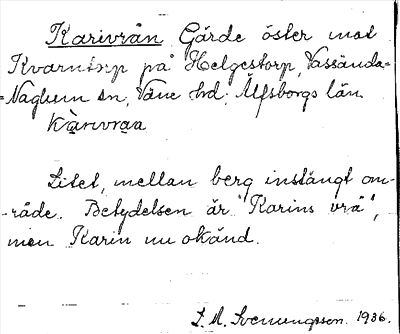 Karivrån Gärde öster mot
Kvarntorp på Helgestorp, Vassända-
-Naglum sn, Väne hd; Älfsborgs län.
Kàrivraa
Litet, mellan berg instängt om-
-råde. Betydelsen är "Karins vrå",
men Karin nu okänd.
L. M. Svenungsson. 1936.